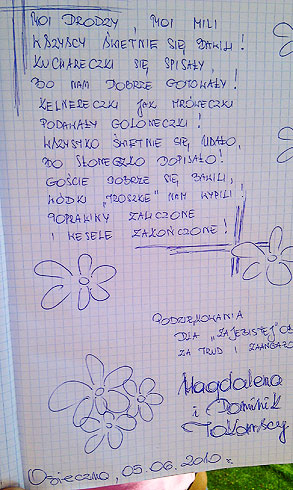 MOI DRODZY, MOI MILI
WSZYSCY ŚWIETNIE SIĘ BAWILI!
KUCHARECZKI SIĘ SPISAŁY,
BO NAM DOBRZE GOTOWAŁY!
KELNERECZKI JAK MRÓWECZKI
PODAWAŁY GOLONECZKI!
WSZYSTKO ŚWIETNIE SIĘ UDAŁO,
BO SŁONECZKO DOPISAŁO!
GOŚCIE DOBRZE SIĘ BAWILI,
WÓDKI „TROSZKE" NAM WYPILI;
POPRAWINY ZALICZONE
I WESELE ZAKOŃCZONE!
PODZIĘKOWANIA
DLA „ZAJEBISTEJ" O
ZA TRUD I ZAANGAŻO
Magdalena
i Dominik
Osieczna, 05.06.2010 r.